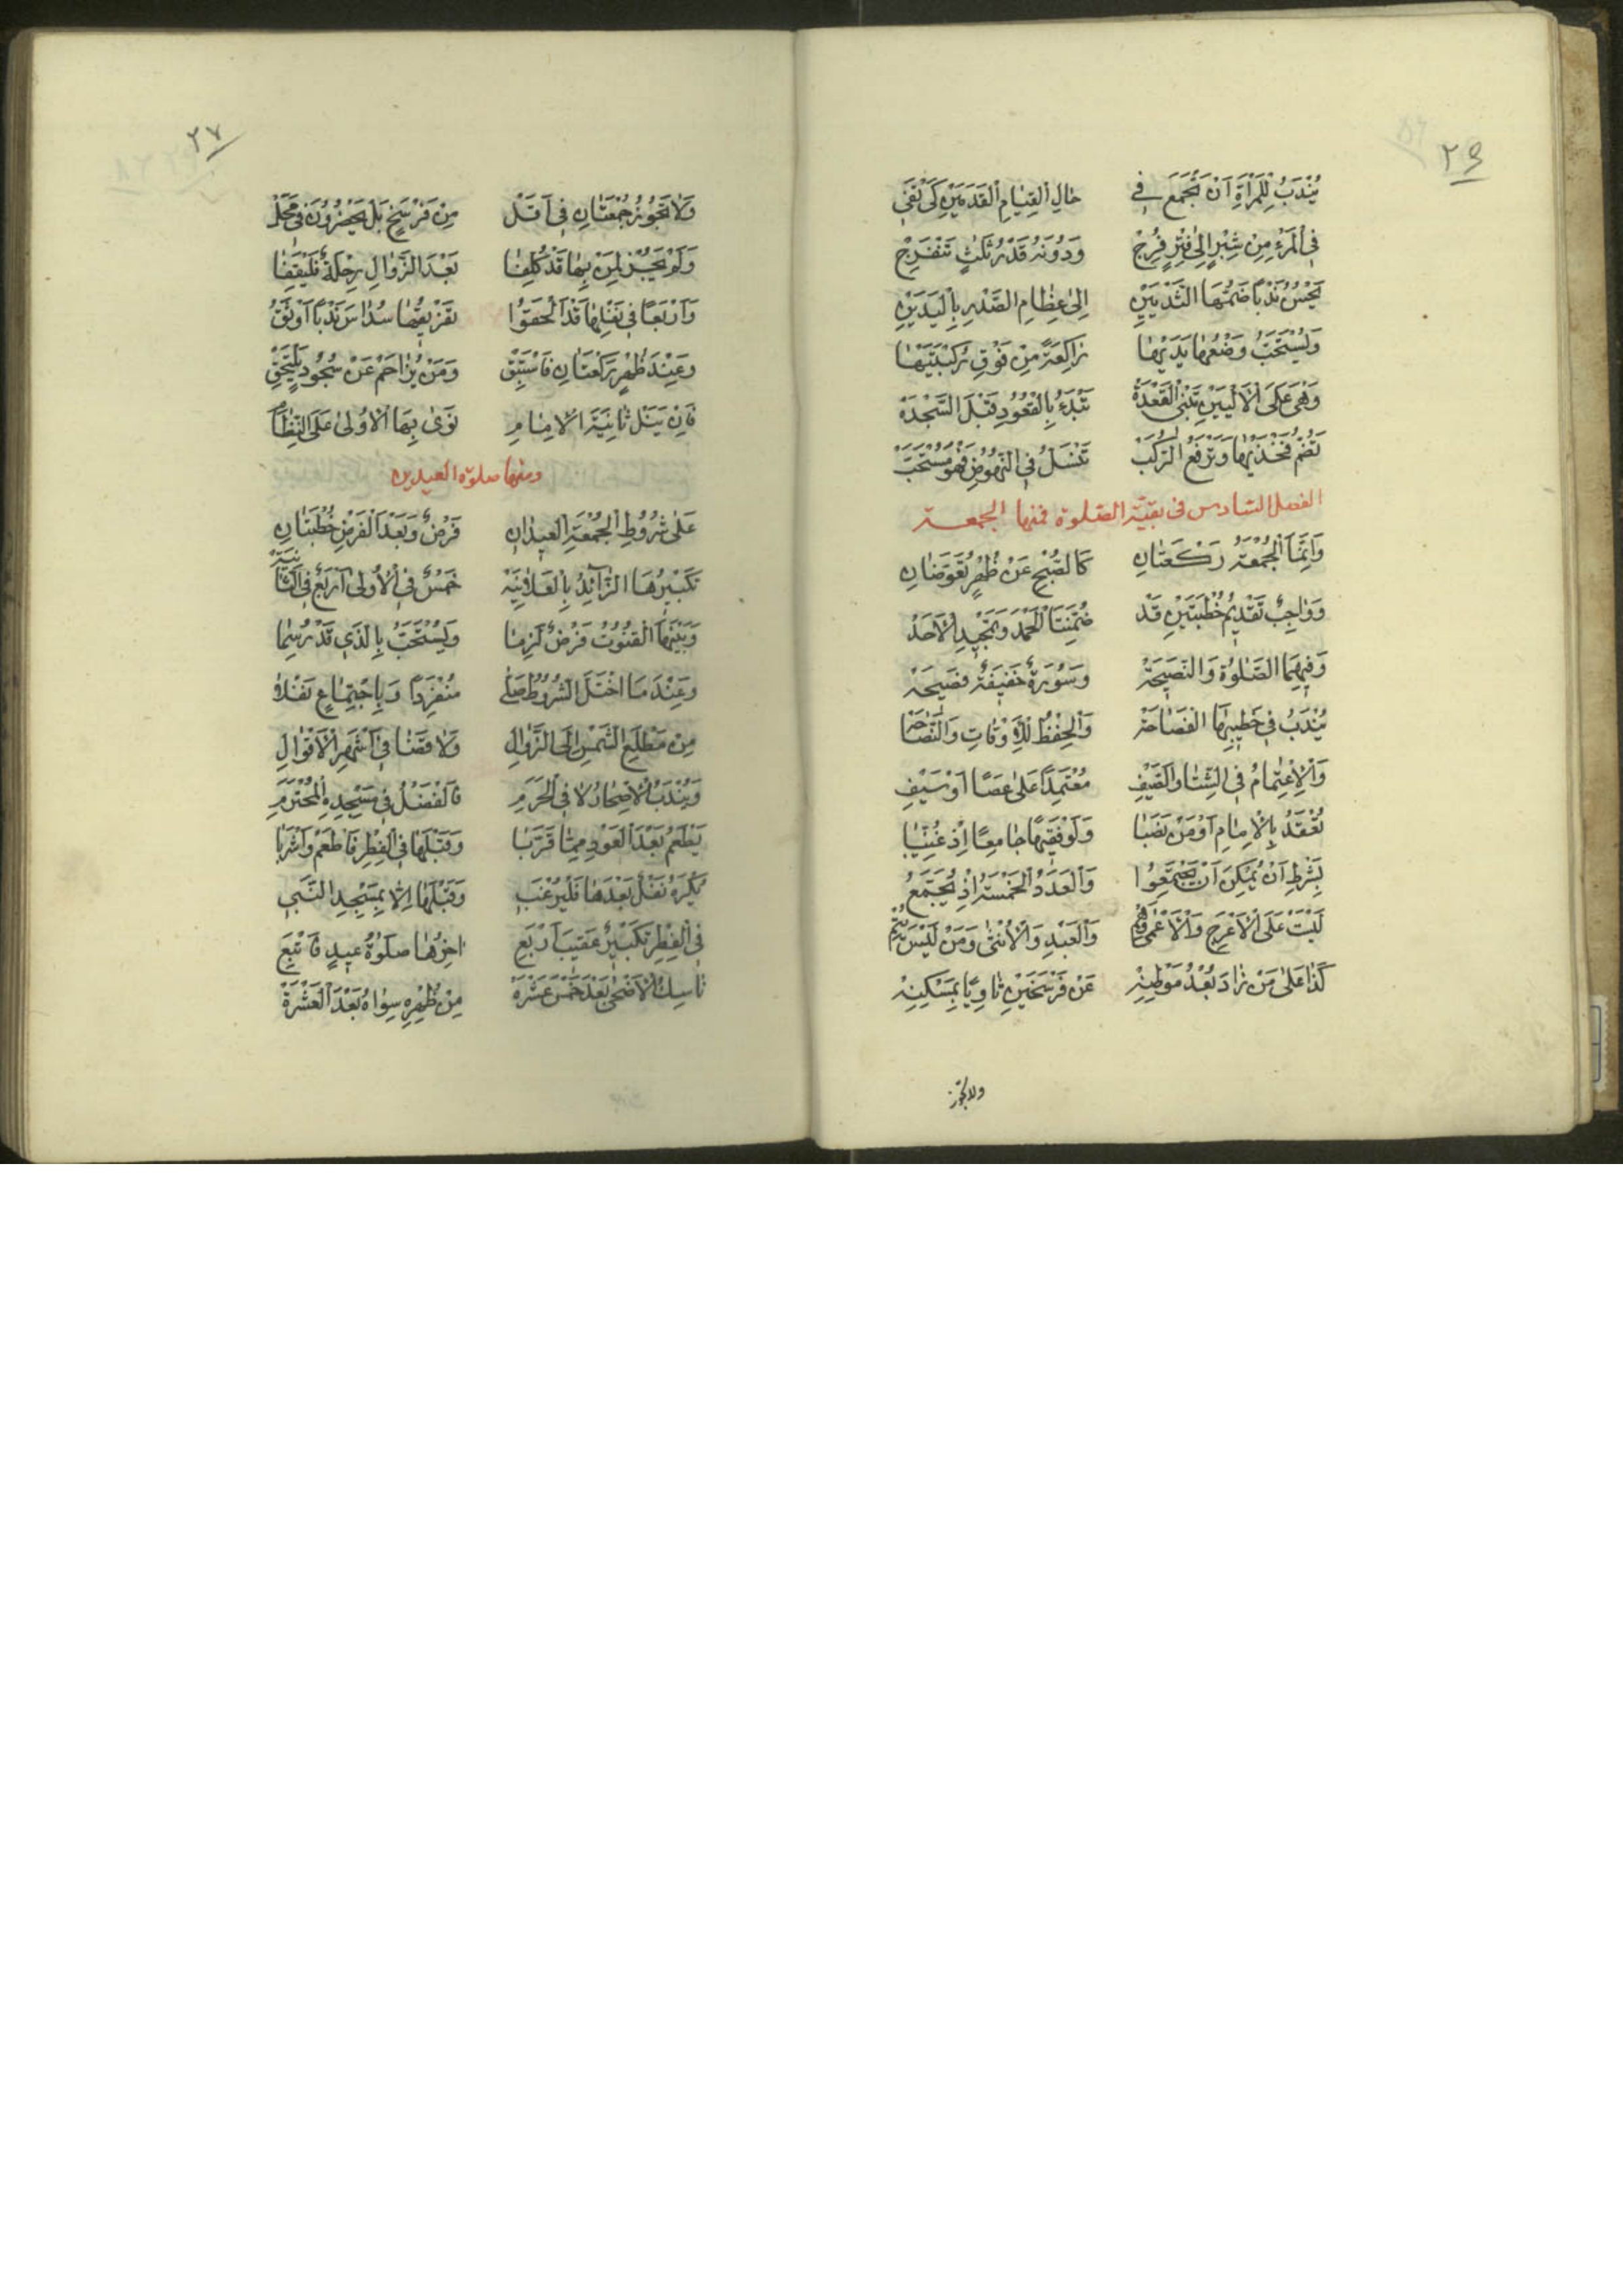 ٢٦
يُنْدَبُ لِلْمَرْأَةِ اَنْ تَجْمَعَ فِي حَالِ الْقِيَامِ الْقَدَمَيْنِ كَيْ تَفِي
فِي الْمَرْءِ مِنْ شِبْرٍ اِلَى فِتْرٍ فُرِجْ وَدُونَهُ قَدْرُ ثَلَثٍ تَنْفَرِجْ
يَحْسُنُ نَدْبًا ضَمُّهَا الثَّدْيَيْنِ اِلَى عِظَامِ الصَّدْرِ بِالْيَدَيْنِ
وَيُسْتَحَبُّ وَضْعُهَا يَدَيْهَا رَاكِعَةً مِنْ فَوْقِ رُكْبَتَيْهَا
وَهْيَ عَلَى الْاَلْيَيْنِ تَبْنِي الْقَعْدَةْ تَبْدَءُ بِالْقُعُودِ قَبْلَ السَّجْدَةْ
تَضُمُّ فَخْذَيْهَا وَتَرْفَعُ الرُّكَبْ تَنْسَلُّ فِي النُّهُوضِ فَهْوَ مُسْتَحَبّْ
الفصل السادس في بقية الصلوة فمنها الجمعة
وَاِنَّمَا الْجُمْعَةُ رَكْعَتَانِ كَالصُّبْحِ عَنْ ظُهْرٍ تُعَوَّضَانِ
وَوَاجِبٌ تَقْدِيمُ خُطْبَتَيْنِ قَدْ ضُمِّنَتَا الْحَمْدَ وَتَمْجِيدَ الْاَحَدْ
وَفِيهِمَا الصَّلٰوةُ وَالنَّصِيحَةْ وَسُورَةٌ خَفِيفَةٌ فَصِيحَةْ
يُنْدَبُ فِي خَطِيبِهَا الْفَصَاحَةْ وَالْحِفْظُ لِلْاَوْقَاتِ وَالنَّصَاحَةْ
وَالْاِعْتِمَامُ فِي الشِّتَا وَالصَّيْفِ مُعْتَمِدًا عَلَى عَصًا اَوْ سَيْفِ
تُعْقَدُ بِالْاِمَامِ اَوْ مَنْ نَصَبَا وَلَوْ فَقِيهًا جَامِعًا اِذْ غُيِّبَا
بِشَرْطِ اَنْ يُمْكِنَ اَنْ يَجْتَمِعُوا وَالْعَدَدُ الْخَمْسَةُ اِذْ يُجْتَمَعُ
لَيْسَتْ عَلَى الْاَعْرَجِ وَالْاَعْمَى وَالْعَبْدِ وَالْاُنْثَى وَمَنْ لَيْسَ يُتِمّْ
كَذَا عَلَى مَنْ زَادَ بُعْدُ مَوْطِنِهْ عَنْ فَرْسَخَيْنِ ثَاوِيًا بِمَسْكِنِهْ
ولا تجوز
٢٧
وَلَا تَجُوزُ جُمْعَتَانِ فِي اَقَلّْ مِنْ فَرْسَخٍ بَلْ يَحْضُرُونَ فِي مَحَلّْ
وَلَمْ يَجُزْ لِمَنْ بِهَا قَدْ كُلِّفَا بَعْدَ الزَّوَالِ رِحْلَةٌ فَلْيَقِفَا
وَاَرْبَعًا فِي نَفْلِهَا قَدْ اَلْحَقُوا تَفْرِيقُهَا سُدَاسَ نَدْبًا اَوْثَقُ
وَعِنْدَ ظُهْرٍ رَكْعَتَانِ فَاسْتَبِقْ وَمَنْ يُزَاحَمْ عَنْ سُجُودٍ يَلْتَحِقْ
فَاِنْ يَنَلْ ثَانِيَةَ الْاِمَامِ نَوَى بِهَا الْاُولَى عَلَى النِّظَامِ
ومنها صلوة العيدين
عَلَى شُرُوطِ الْجُمْعَةِ الْعِيدَانِ فَرْضٌ وَبَعْدَ الْفَرْضِ خُطْبَتَانِ
تَكْبِيرُهَا الزَّائِدُ بِالْعَلَانِيَةْ خَمْسٌ فِي الْاُولَى اَرْبَعٌ فِي الثَّانِيَةْ
وَبَيْنَهَا الْقُنُوتُ فَرْضٌ لَزِمَا وَيُسْتَحَبُّ بِالَّذِي قَدْ رُسِمَا
وَعِنْدَ مَا اخْتَلَّ الشُّرُوطُ صَلِّ مُنْفَرِدًا وَبِاجْتِمَاعٍ نَفْلًا
مِنْ مَطْلَعِ الشَّمْسِ اِلَى الزَّوَالِ وَلَا قَضَا فِي اَشْهَرِ الْاَقْوَالِ
وَيُنْدَبُ الْاِصْحَارُ لَا فِي الْحَرَمِ فَالْفَضْلُ فِي مَسْجِدِهِ الْمُحْتَرَمِ
يَطْعَمُ بَعْدَ الْعَوْدِ مِمَّا قَرَّبَا وَقَبْلَهَا فِي الْفِطْرِ فَاطْعَمْ وَاشْرَبَا
يُكْرَهُ نَفْلٌ بَعْدَهَا فَلْيُرْغَبِ وَقَبْلَهَا اِلَّا بِمَسْجِدِ النَّبِي
فِي الْفِطْرِ تَكْبِيرٌ عَقِيبَ اَرْبَعِ اٰخِرُهَا صَلٰوةُ عِيدٍ فَاتْبَعِ
نَاسِكُ الْاَضْحَى بَعْدَ خَمْسَ عَشْرَةْ مِنْ ظُهْرِهِ سِوَاهُ بَعْدَ الْعَشْرَةْ